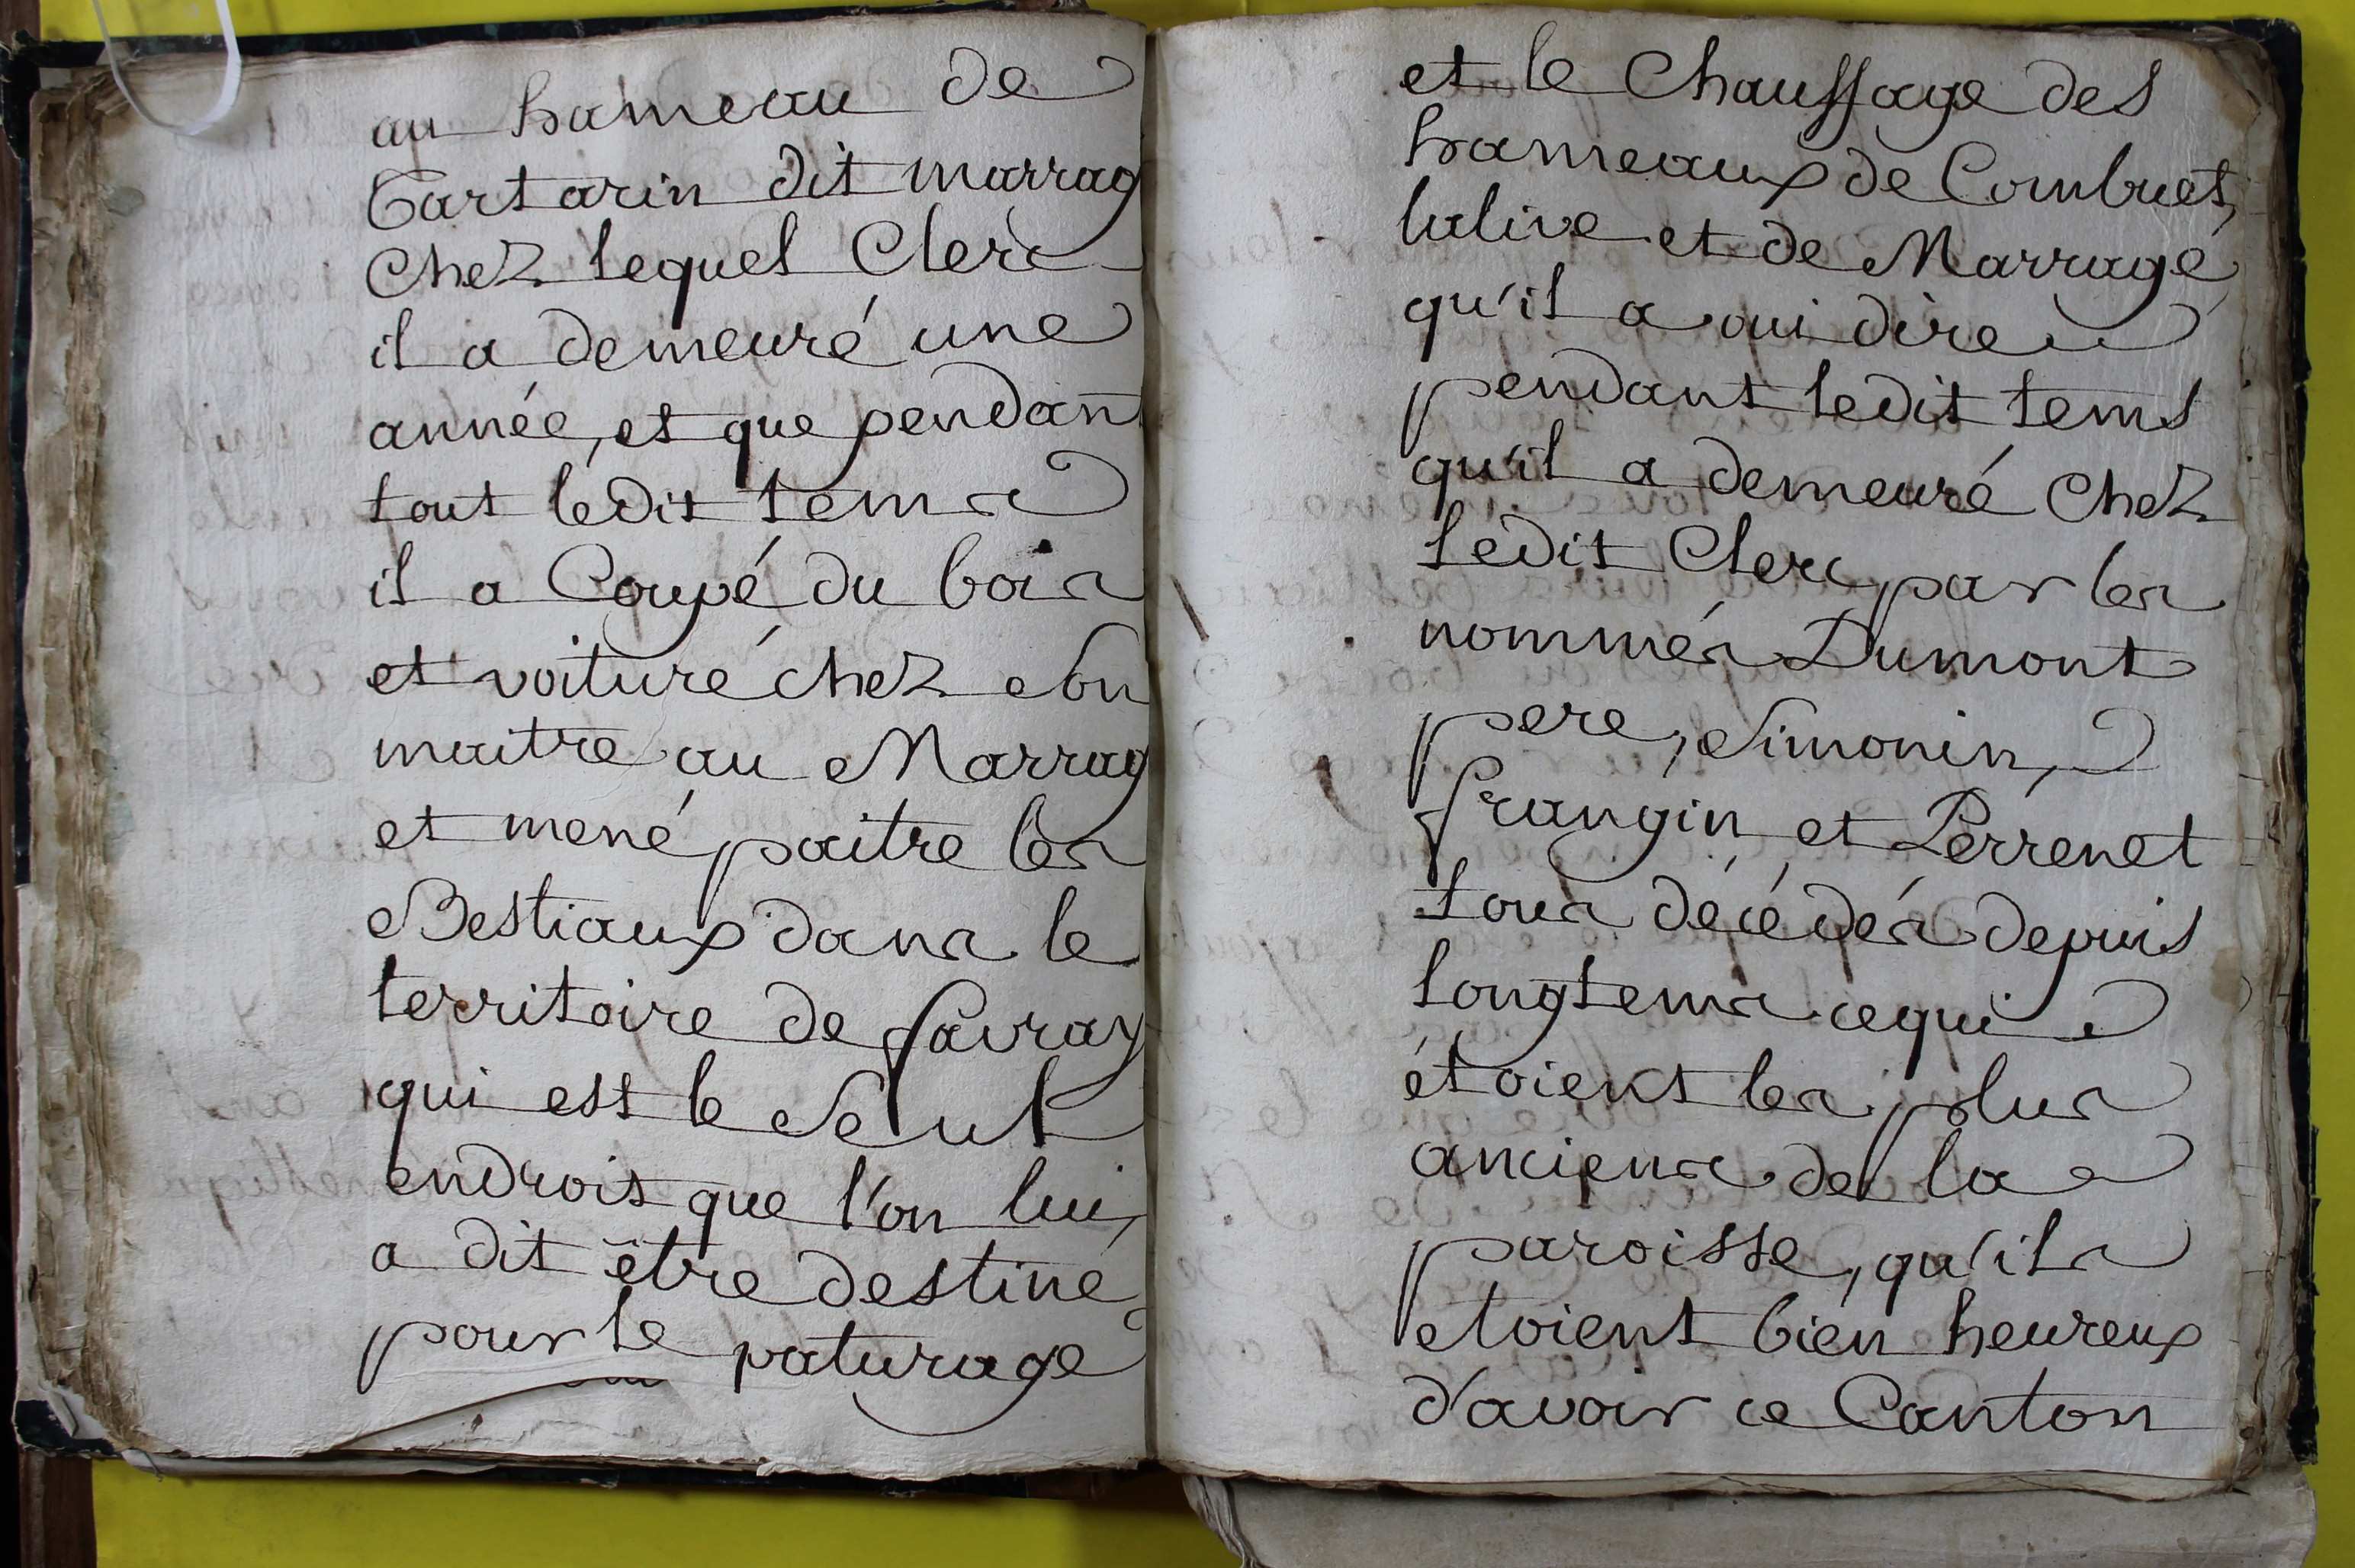 au hameau de
Tartarin dit marrag
Chez lequel Clerc
il a demeuré une
année, et que pendant
tout ledit tems
il a Coupé du bois
et voituré chez son
maitre au Marrag
et mené paitre les
Bestiaux dans le
territoire de favray
qui est le seul
endrois que l'on lui
a dit être destiné
pour le paturage
et le Chauffage des
hameaux de Combuet,
lalive et de Marragé
qu'il a oui dire
pendant ledit tems
qu'il a demeuré Chez
ledit Clerc, par les
nommés Dumont
pere, Simonin,
frangin et Perrenet
tous décédés depuis
longtems cequi
étoient les plus
anciens de la
paroisse, qu'ils
etoient bien heureux
d'avoir ce Canton